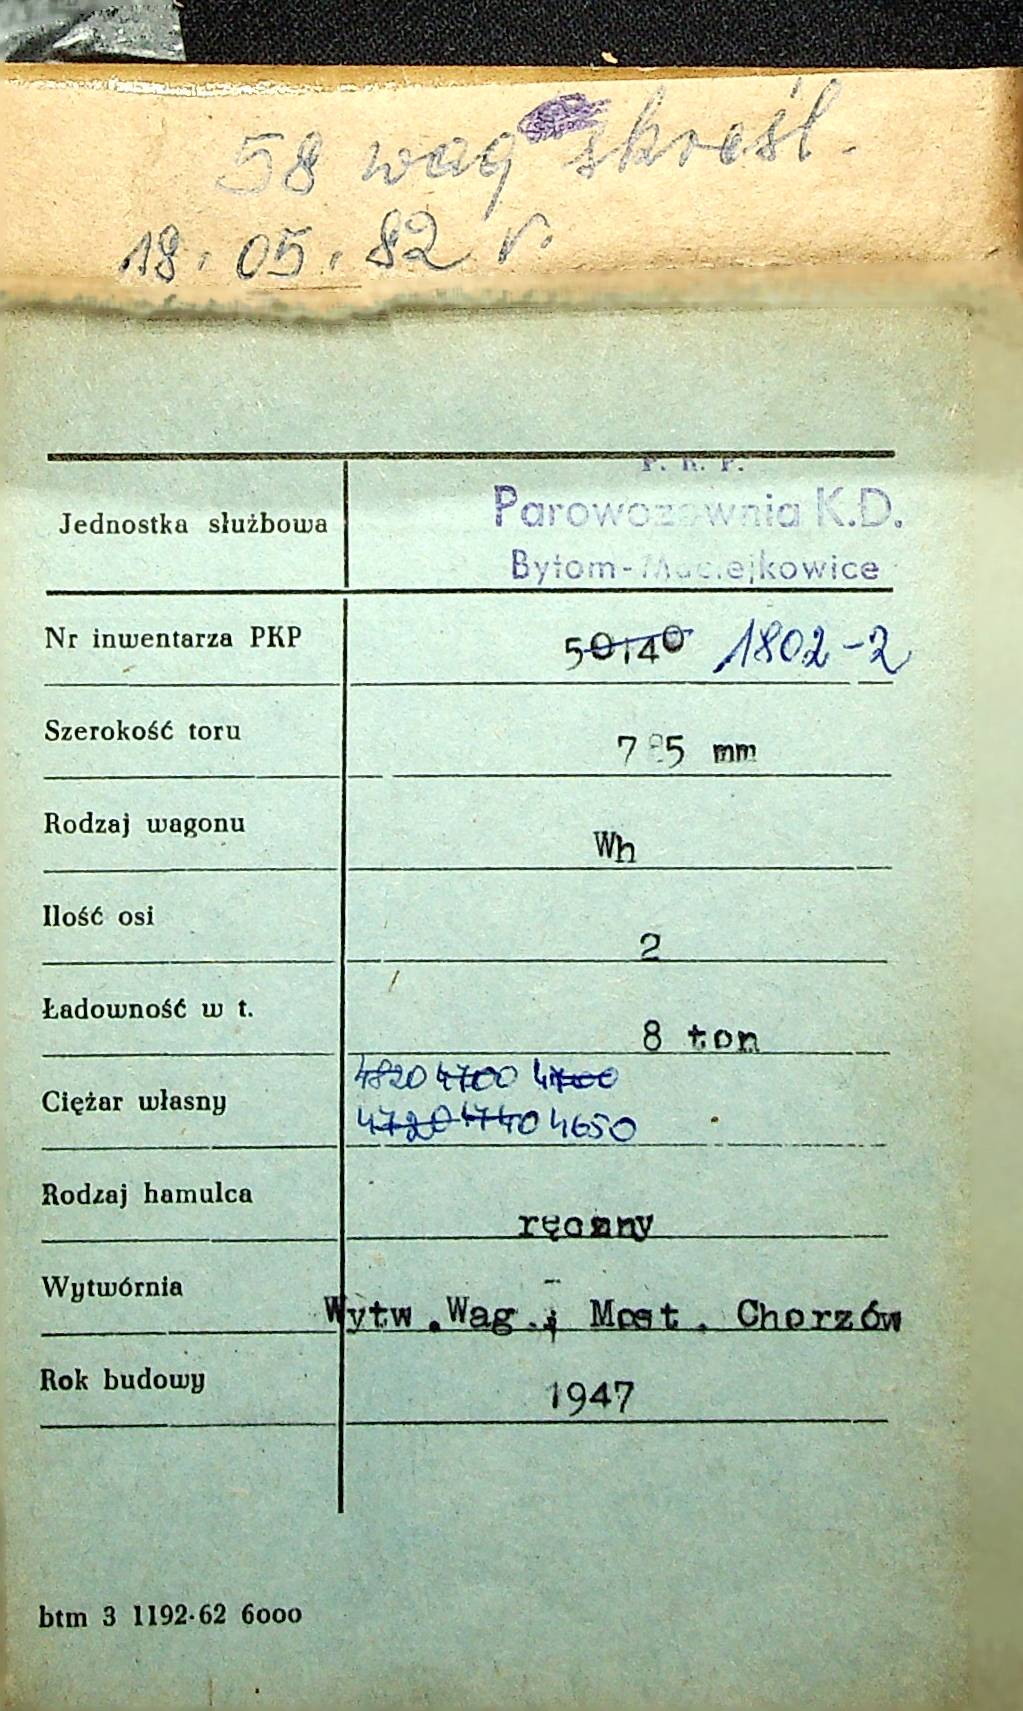 58 wag skreśl.
18.05.82 r.
P. K. P.
Parowozownia K.D.
Bytom-Maciejkowice
Jednostka służbowa
Nr inwentarza PKP 50140 1802-2
Szerokość toru 785 mm
Rodzaj wagonu Wh
Ilość osi 2
Ładowność w t. 8 ton
4820 4700 4700
Ciężar własny 4720 4740 4650
Rodzaj hamulca ręczny
Wytwórnia Wytw.Wag.i Most. Chorzów
Rok budowy 1947
btm 3 1192-62 6000